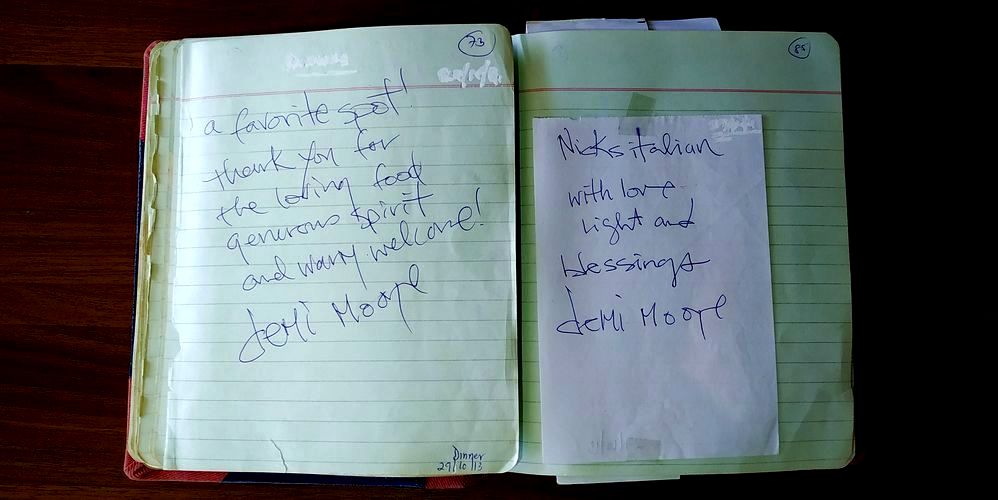 73
a favorite spot!
thank you for
the loving food
generous spirit
and warm welcome!
Demi Moore
Dinner
29/10/13
85
Nicks italian
with love
Light and
blessings
Demi Moore